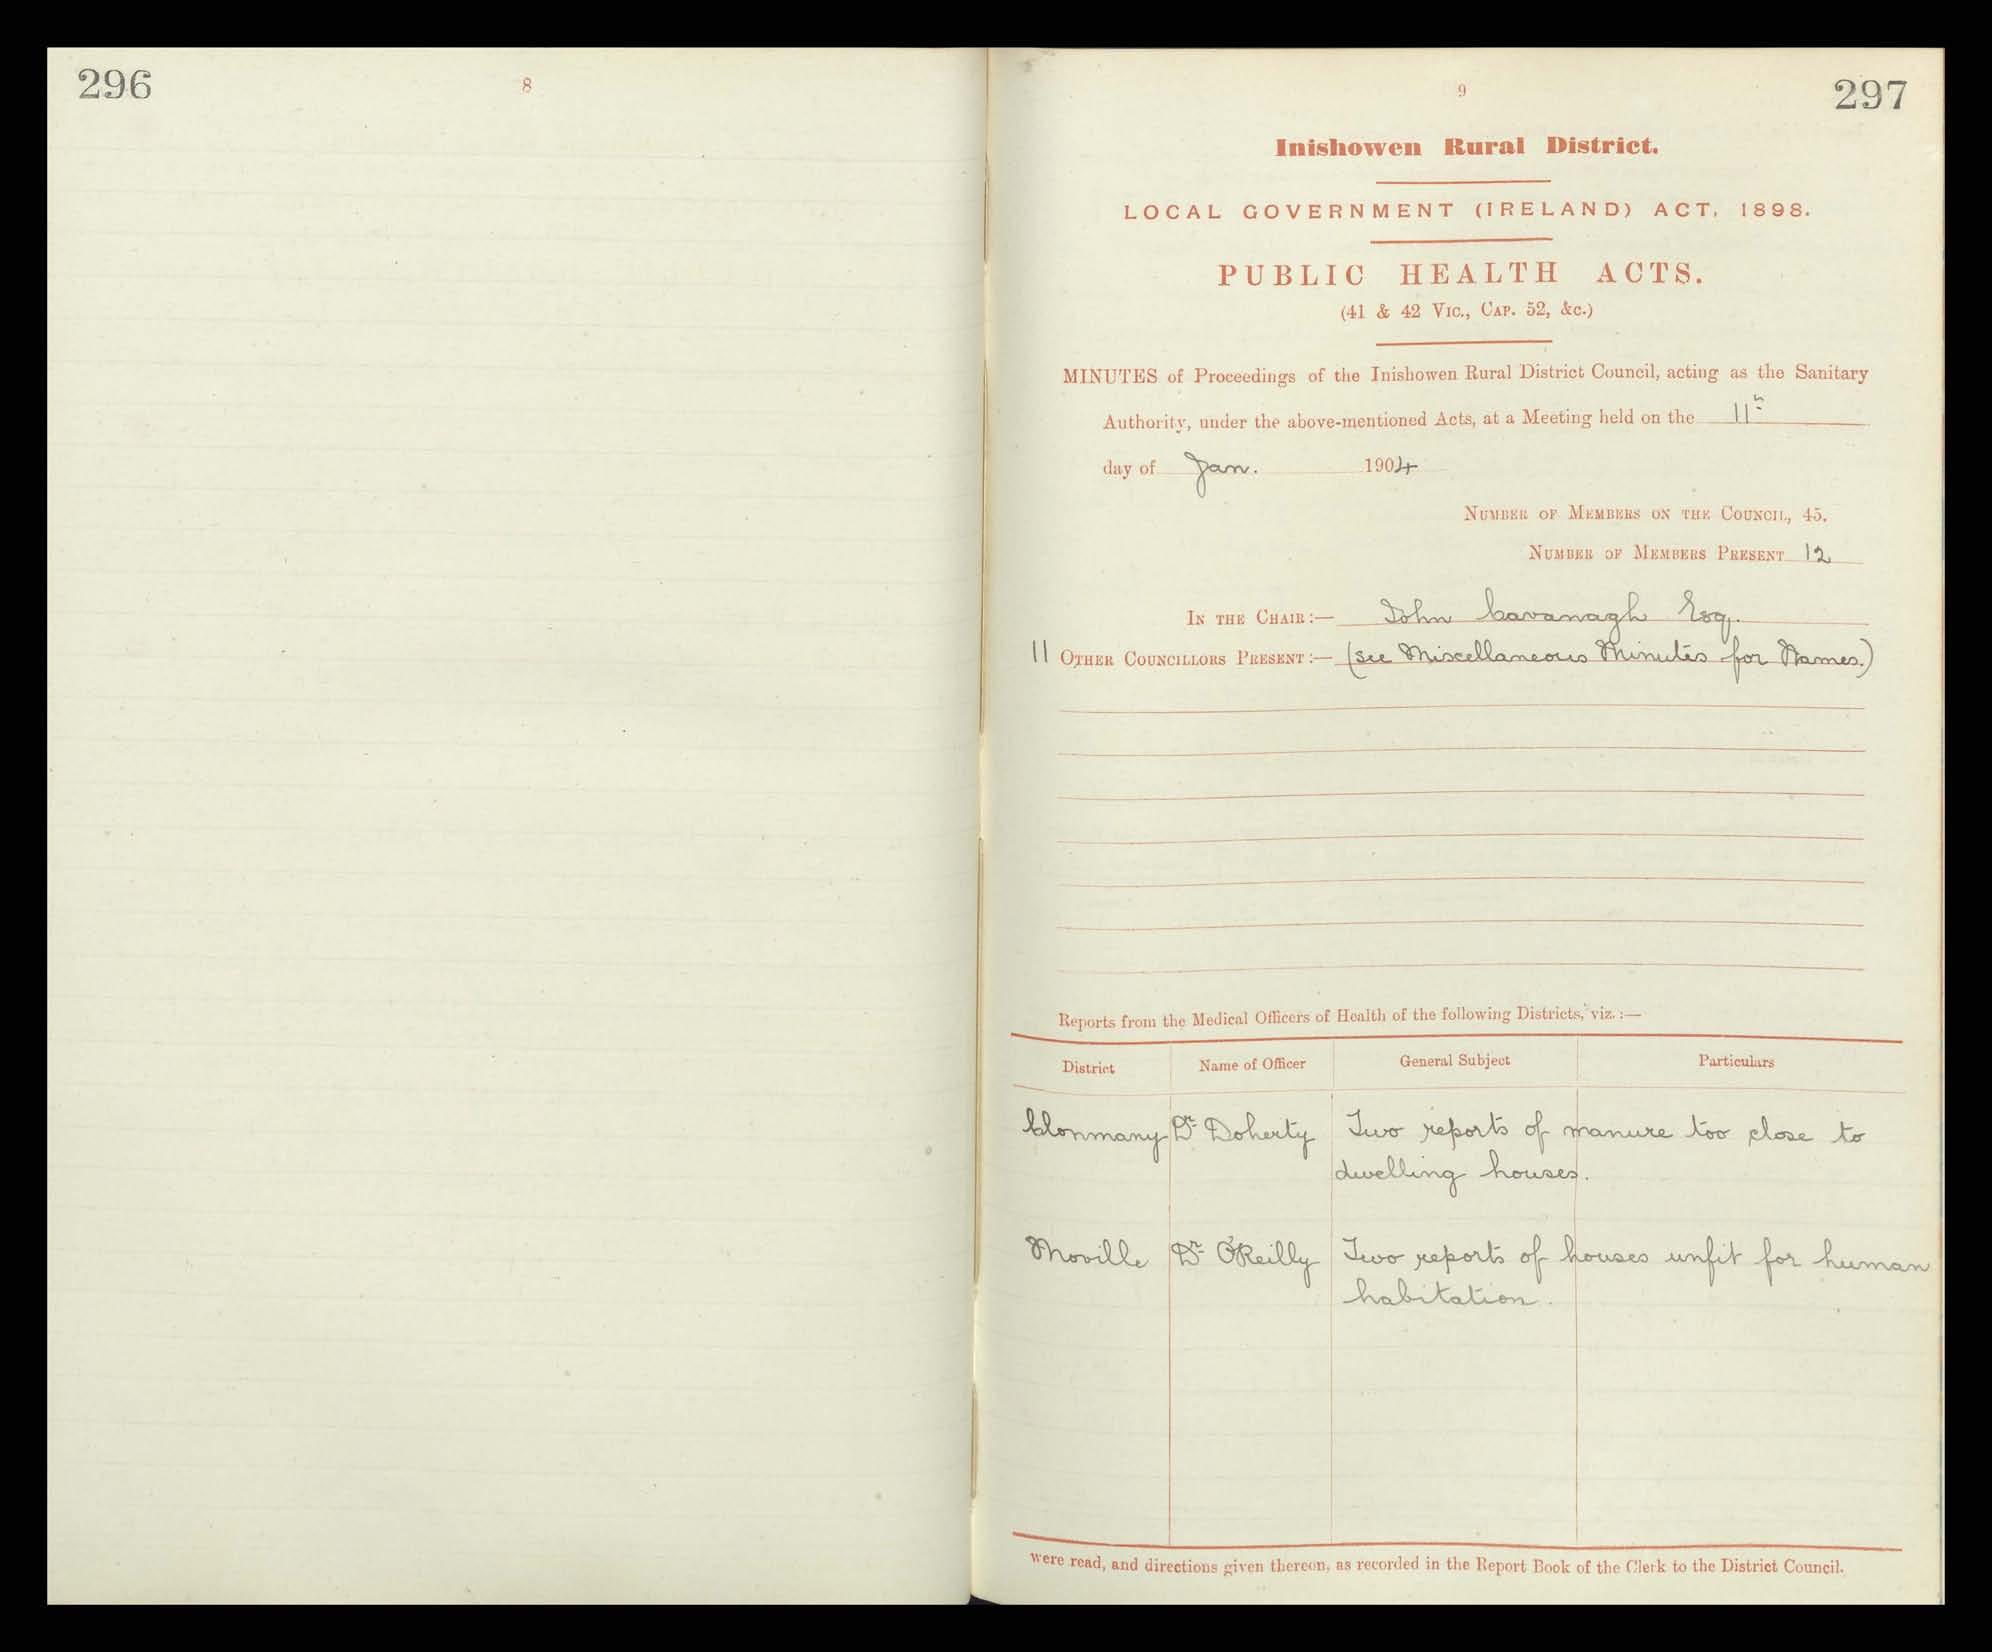 296
8
9
297
Inishowen Rural District.
LOCAL GOVERNMENT (IRELAND) ACT, 1898.
PUBLIC HEALTH ACTS.
(41 & 42 VIC., CAP. 52, &c.)
MINUTES of Proceedings of the Inishowen Rural District Council, acting as the Sanitary
Authority, under the above-mentioned Acts, at a Meeting held on the 11th
day of Jan. 1904
NUMBER OF MEMBERS ON THE COUNCIL, 45.
NUMBER OF MEMBERS PRESENT 12
IN THE CHAIR:— John Cavanagh Esq.
11 OTHER COUNCILLORS PRESENT:— (see Miscellaneous Minutes for Names.)
Reports from the Medical Officers of Health of the following Districts, viz.:—
District Name of Officer General Subject Particulars
Clonmany Dr Doherty Two reports of manure too close to
dwelling houses.
Moville Dr O'Reilly Two reports of houses unfit for human
habitation.
were read, and directions given thereon, as recorded in the Report Book of the Clerk to the District Council.